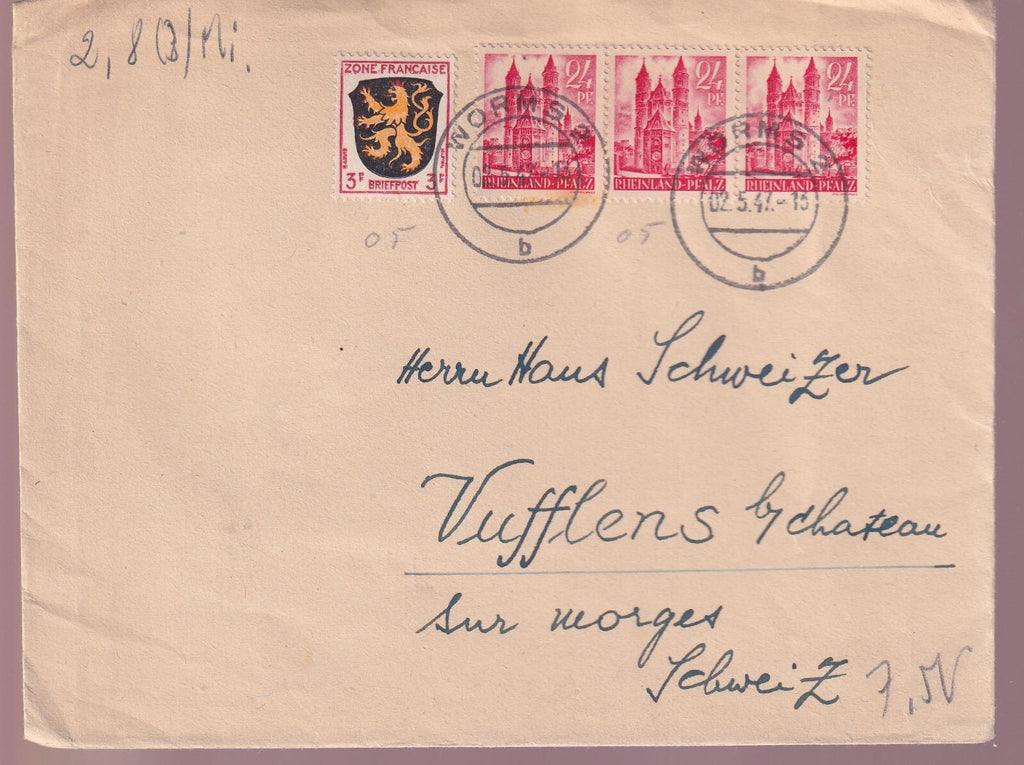 2, 8 (3/Mi.
ZONE FRANÇAISE
3F BRIEFPOST 3F
24 PF. RHEINLAND-PFALZ
24 PF. RHEINLAND-PFALZ
24 PF. RHEINLAND-PFALZ
WORMS 2
02.5.47.-
b
WORMS 2
02.5.47.-
b
05
05
Herrn Hans Schweizer
Vufflens b/chateau
sur morges
Schweiz